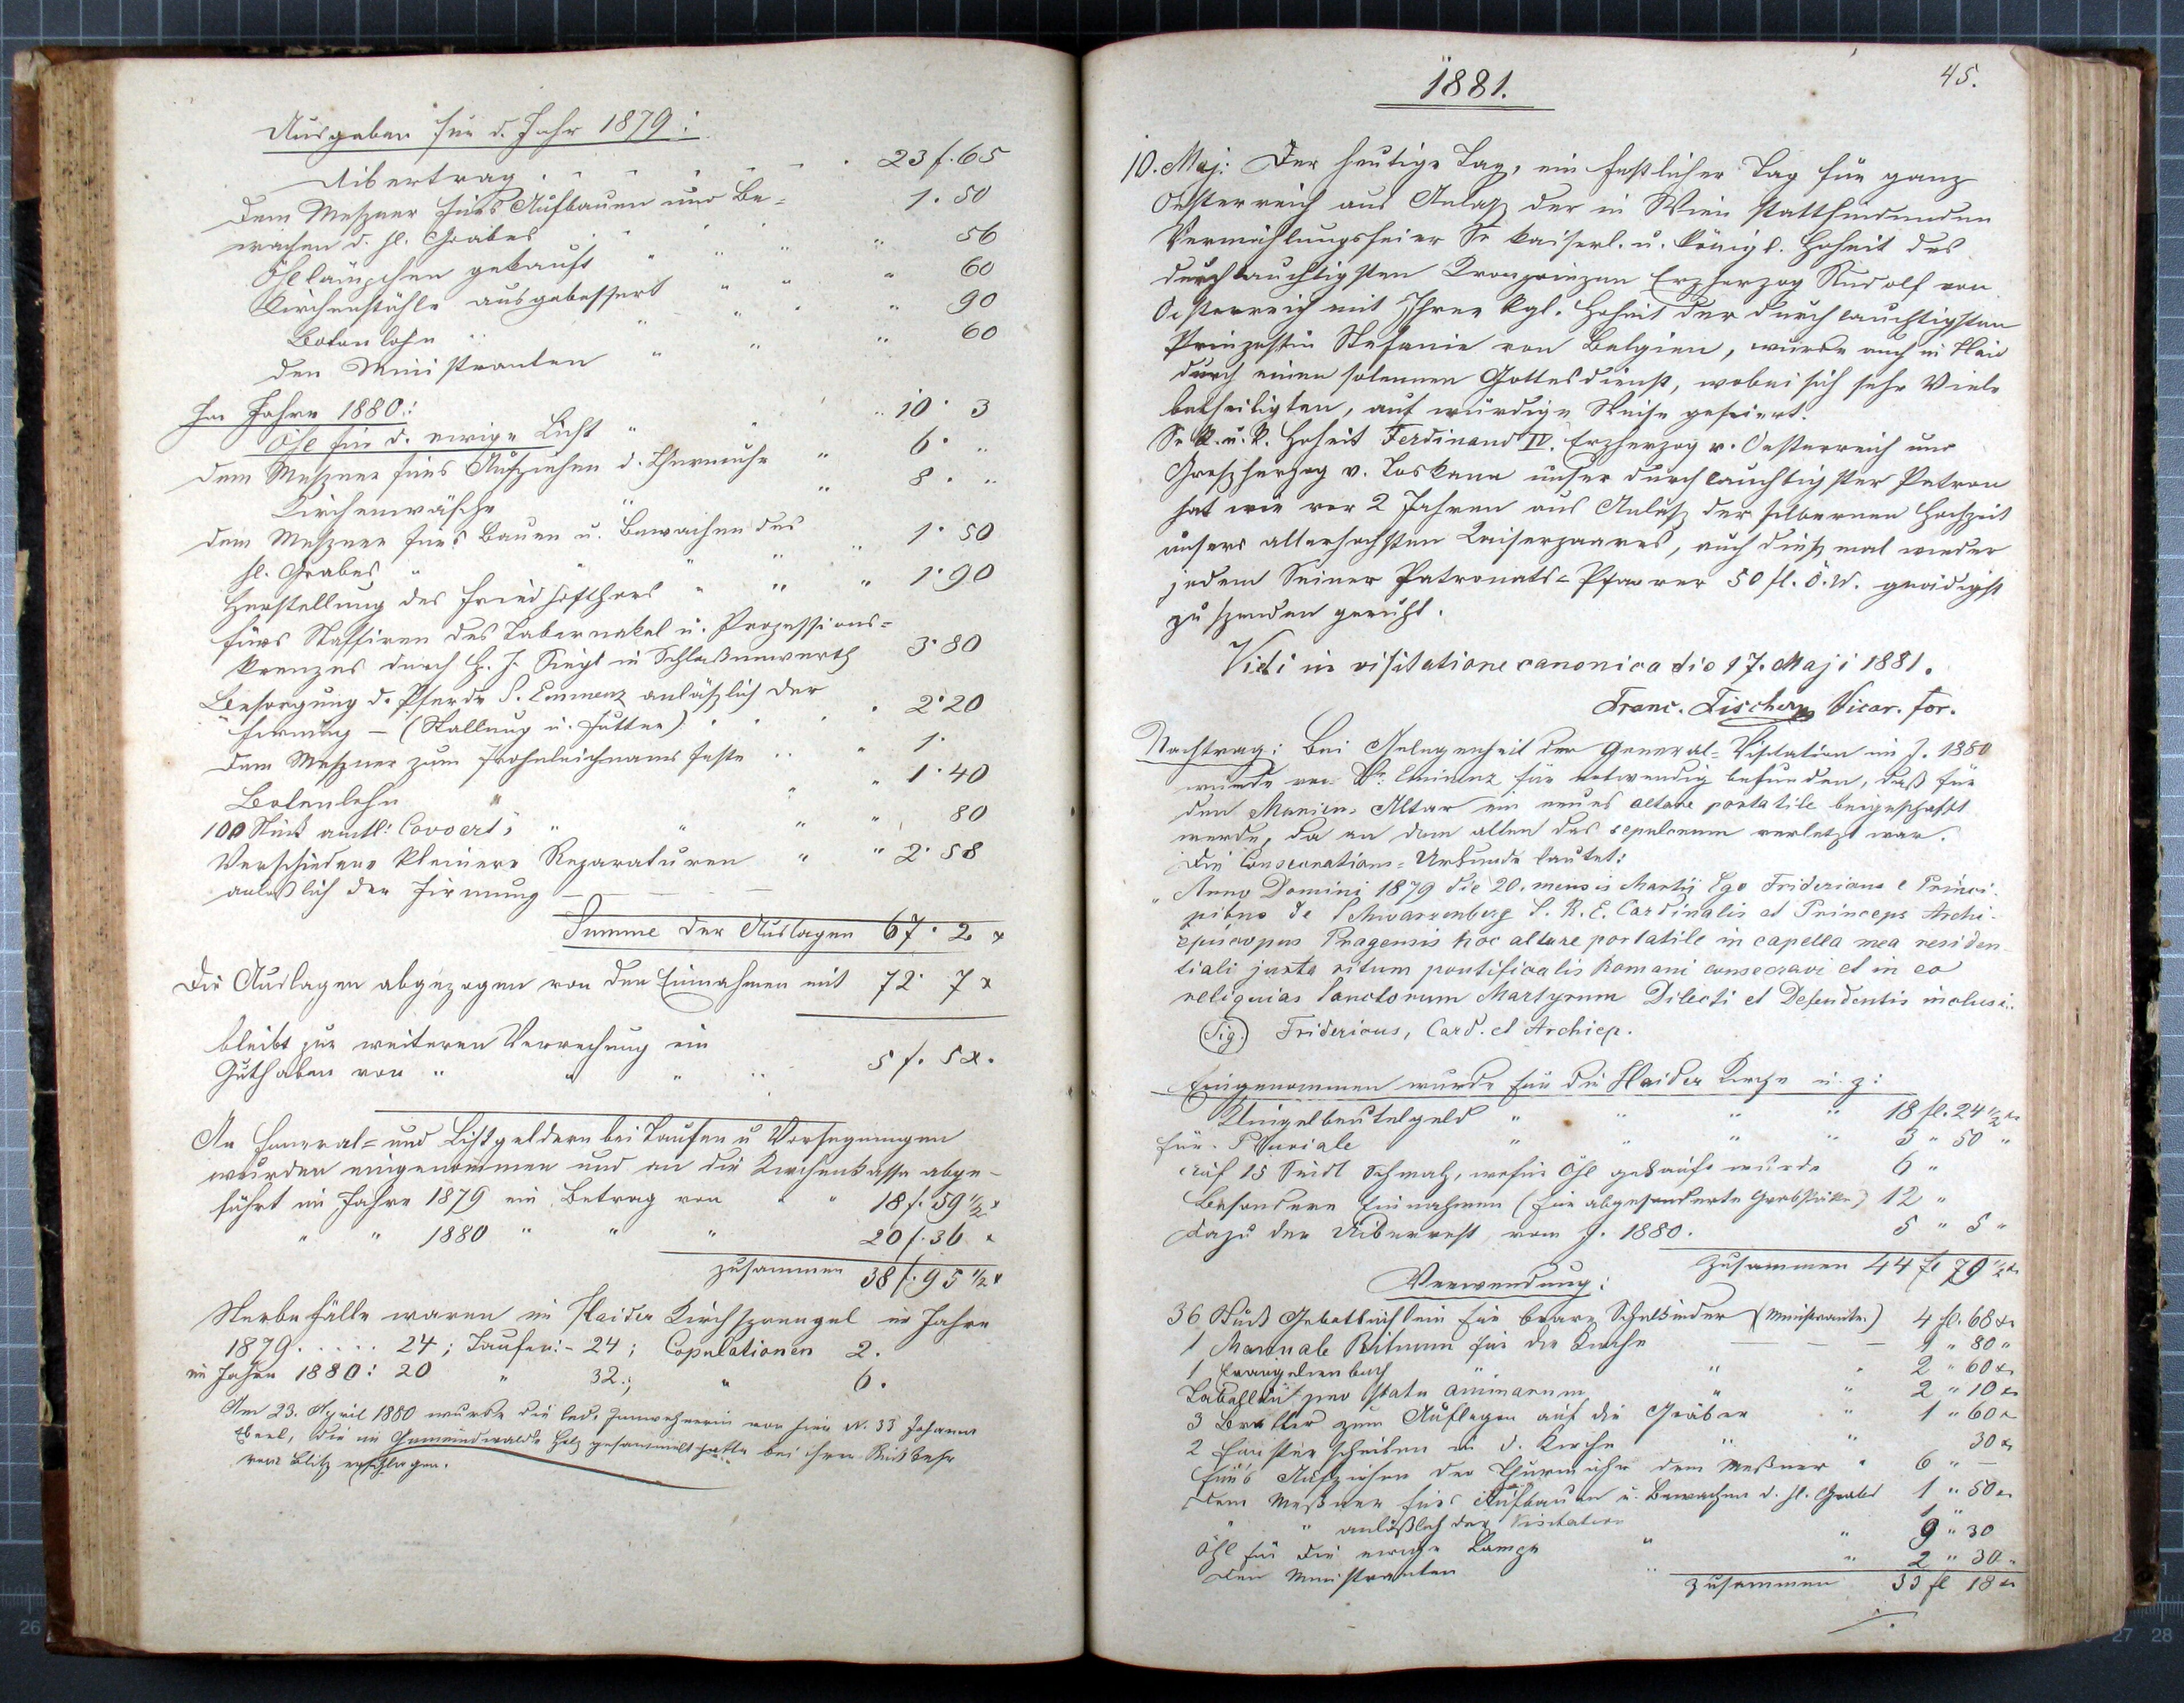 Ausgaben für d. Jahr 1879:
Uibertrag . . . . . . 23 f. 65
Dem Meßner fürs Aufbauen und Be=
wachen d. hl. Grabes 1. 50
Öhllämpchen gekauft " " " 56
Kirchenstühle ausgebessert " " " 60
Botenlohn " " " " 90
den Ministranten " " " 60
Im Jahre 1880:
Öhl für d. ewige Licht " " " 10 · 3
dem Meßner fürs Aufziehen d. Thurmuhr " 6 · "
Kirchenwäsche " " 8 · "
dem Meßner fürs Bauen u. Bewachen des
hl. Grabes " " " " 1 · 50
Herstellung des Friedhofthores " " " 1 · 90
fürs Staffiren des Tabernakel u. Prozessions=
kreuzes durch H. J. Siegl in Schlackenwerth 3 · 80
Besorgung d. Pferde S. Eminenz anläßlich der
Firmung – (Stallung u. Futter) . . . 2 · 20
Dem Meßner zum Frohnleichnams feste . . " 1 ·
Botenlohn " " " 1 · 40
100 Stück amtl: Couverts " " " " 80
Verschiedene kleinere Reparaturen " " 2 · 58
anläßlich der Firmung — — — —
Summe der Auslagen 67 · 2 x
Die Auslagen abgezogen von den Einnahmen mit 72 · 7 x
bleibt zur weiteren Verrechnung ein
Guthaben von " " " " 5 f. 5 x.
An Funeral= und Lichtgeldern bei Taufen u Vorsegnungen
wurden eingenommen und an die Kirchenkasse abge-
führt im Jahre 1879 ein Betrag von " " 18 f. 59 1/2 x
" " 1880 " " " 20 f. 36 x
zusammen 38 f. 95 1/2 x
Sterbefälle waren im Haider Kirchsprengel im Jahre
1879 . . . . . 24 ; Taufen: - 24 ; Copulationen 2.
im Jahre 1880: 20 " 32.; " 6.
Am 23. April 1880 wurde die led. Inwohnerin von hier N. 33 Johanna
die im Gemeindwalde Holz gesammelt hatte bei ihrer Rückkehr
vom Blitz erschlagen.
1881.
45.
10. Maj: Der heutige Tag, ein festlicher Tag für ganz
Oesterreich aus Anlaß der in Wien stattfindenden
Vermählungsfeier Sr kaiserl. u. königl. Hoheit des
durchlauchtigsten Kronprinzen Erzherzog Rudolf von
Oesterreich mit Ihrer kgl. Hoheit der durchlauchtigsten
Prinzessin Stefanie von Belgien, wurde auch in Haid
durch einen solennen Gottesdienst, wobei sich sehr Viele
betheiligten, auf würdige Weise gefeiert.
Se k. u. k. Hoheit Ferdinand IV. Erzherzog v. Oesterreich und
Großherzog v. Toskana unser durchlauchtigster Patron
hat wie vor 2 Jahren aus Anlaß der silbernen Hochzeit
unsers allerhöchsten Kaiserpaares, auch dießmal wieder
jedem Seiner Patronats=Pfarrer 50 fl. ö. W. gnädigst
zu spenden geruht.
Vidi in visitatione canonica die 17. Maji 1881.
Franc. Fischer Vicar. for.
Nachtrag: Bei Gelegenheit der General=Visitation im J. 1880
wurde von Sr. Eminenz für notwendig befunden, daß für
den Marien-Altar ein neues altare portatile beigeschafft
werde, da an dem alten das sepulcrum verletzt war.
Die Consecrations=Urkunde lautet:
"Anno Domini 1879 die 20. mensis Martij Ego Fridericus e Princi-
pibus de Schwarzenberg S. R. E. Cardinalis et Princeps Archi-
episcopus Pragensis hoc altare portatile in capella mea residen-
tiali juxta ritum pontificalis Romani consecravi et in eo
reliquias Sanctorum Martyrum Dilecti et Defendentis inclusi..
(Sig.) Fridericus, Card. et Archiep.
Eingenommen wurde für die Haider Kirche u. z:
Klingelbeutelgeld " " " " 18 fl. 24 1/2 x
für Pluviale " " " " 3 " 50 "
auf 15 Seidl Schmalz, wofür Öhl gekauft wurde 6 "
Besondere Einnahmen (für abgesonderte Grabstätten) 12 "
dazu der Uiberrest vom J. 1880. 5 " 5 "
Zusammen 44 fl 79 1/2 x
Verwendung:
36 Stück Gebetbüchlein für brave Schulkinder (Ministranten) 4 fl. 68 x
1 Manuale Rituum für die Kirche — — — 1 " 80 "
1 Evangelienbuch " " 2 " 60 x
Tabellen pro statu animarum " " 2 " 10 x
3 Bretter zum Auflegen auf die Gräber " 1 " 60 x
2 Fensterscheiben in d. Kirche " " 30 x
fürs Aufziehen der Thurmuhr dem Meßner " 6 " —
Dem Meßner fürs Aufbauen u. Bewachen d. hl. Grabes 1 " 50 x
" " anläßlich der Visitation 1 "
Öhl für die ewige Lampe " " 9 " 30
Den Ministranten " " 2 " 30 "
Zusammen 33 fl 18 x
26
27 28